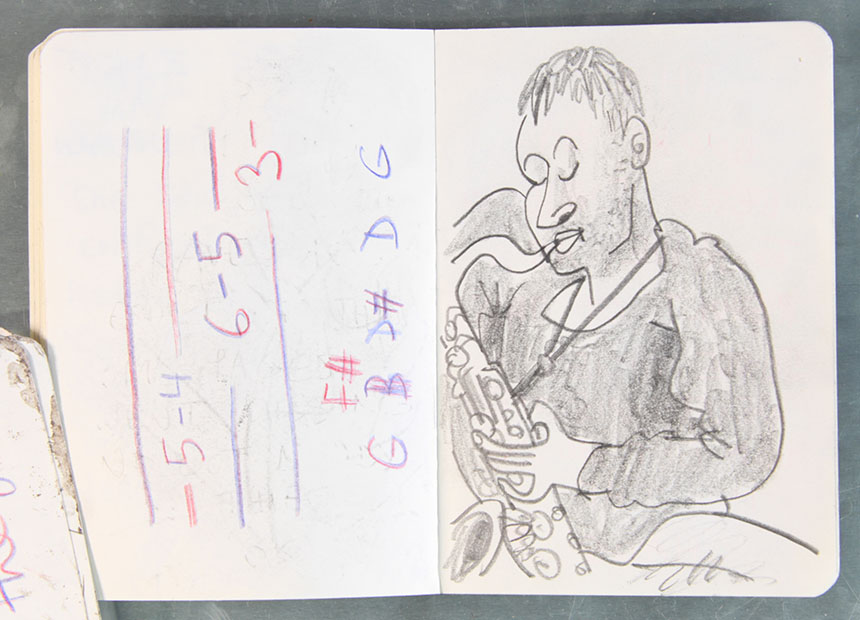 -5-4
6-5
3-
F#
G B A# D G